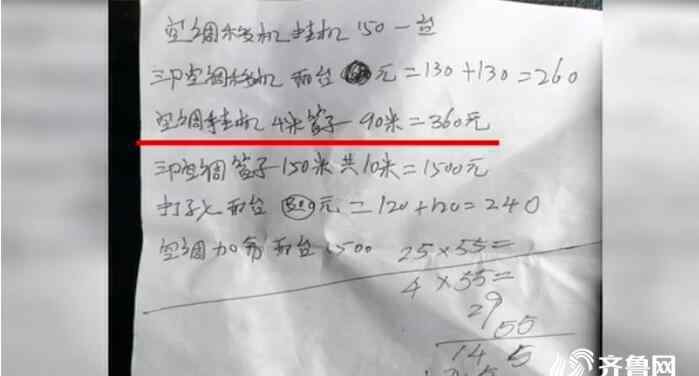 空调移机挂机150一台
空调移机两台元=130+130=260
空调挂机4米管子一90米=360元
空调管子150米共10米=1500元
打孔两台元=120+120=240
空调加两台500
25×55=
4×55=
29
55
14 5
齐鲁网